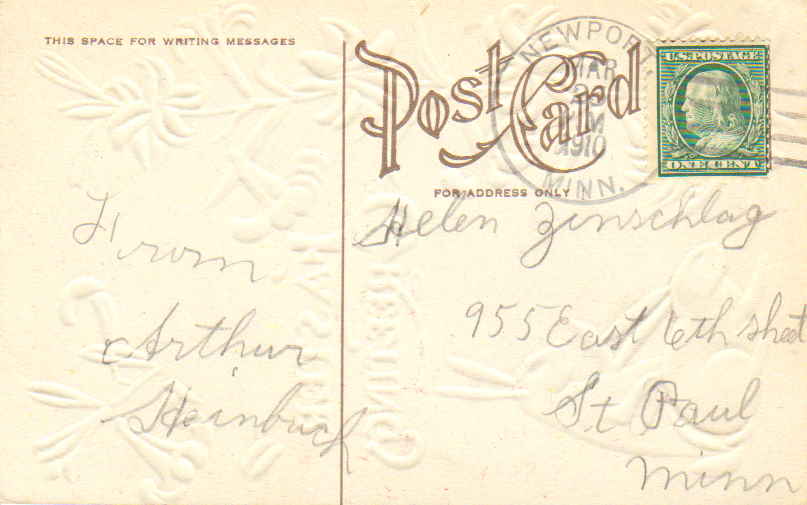 THIS SPACE FOR WRITING MESSAGES
Post Card
FOR ADDRESS ONLY
NEWPORT
MAR
1910
MINN.
U.S. POSTAGE
ONE CENT
From
Arthur
Heinbuch
Helen Zinschlag
955 East 6th street
St Paul
Minn